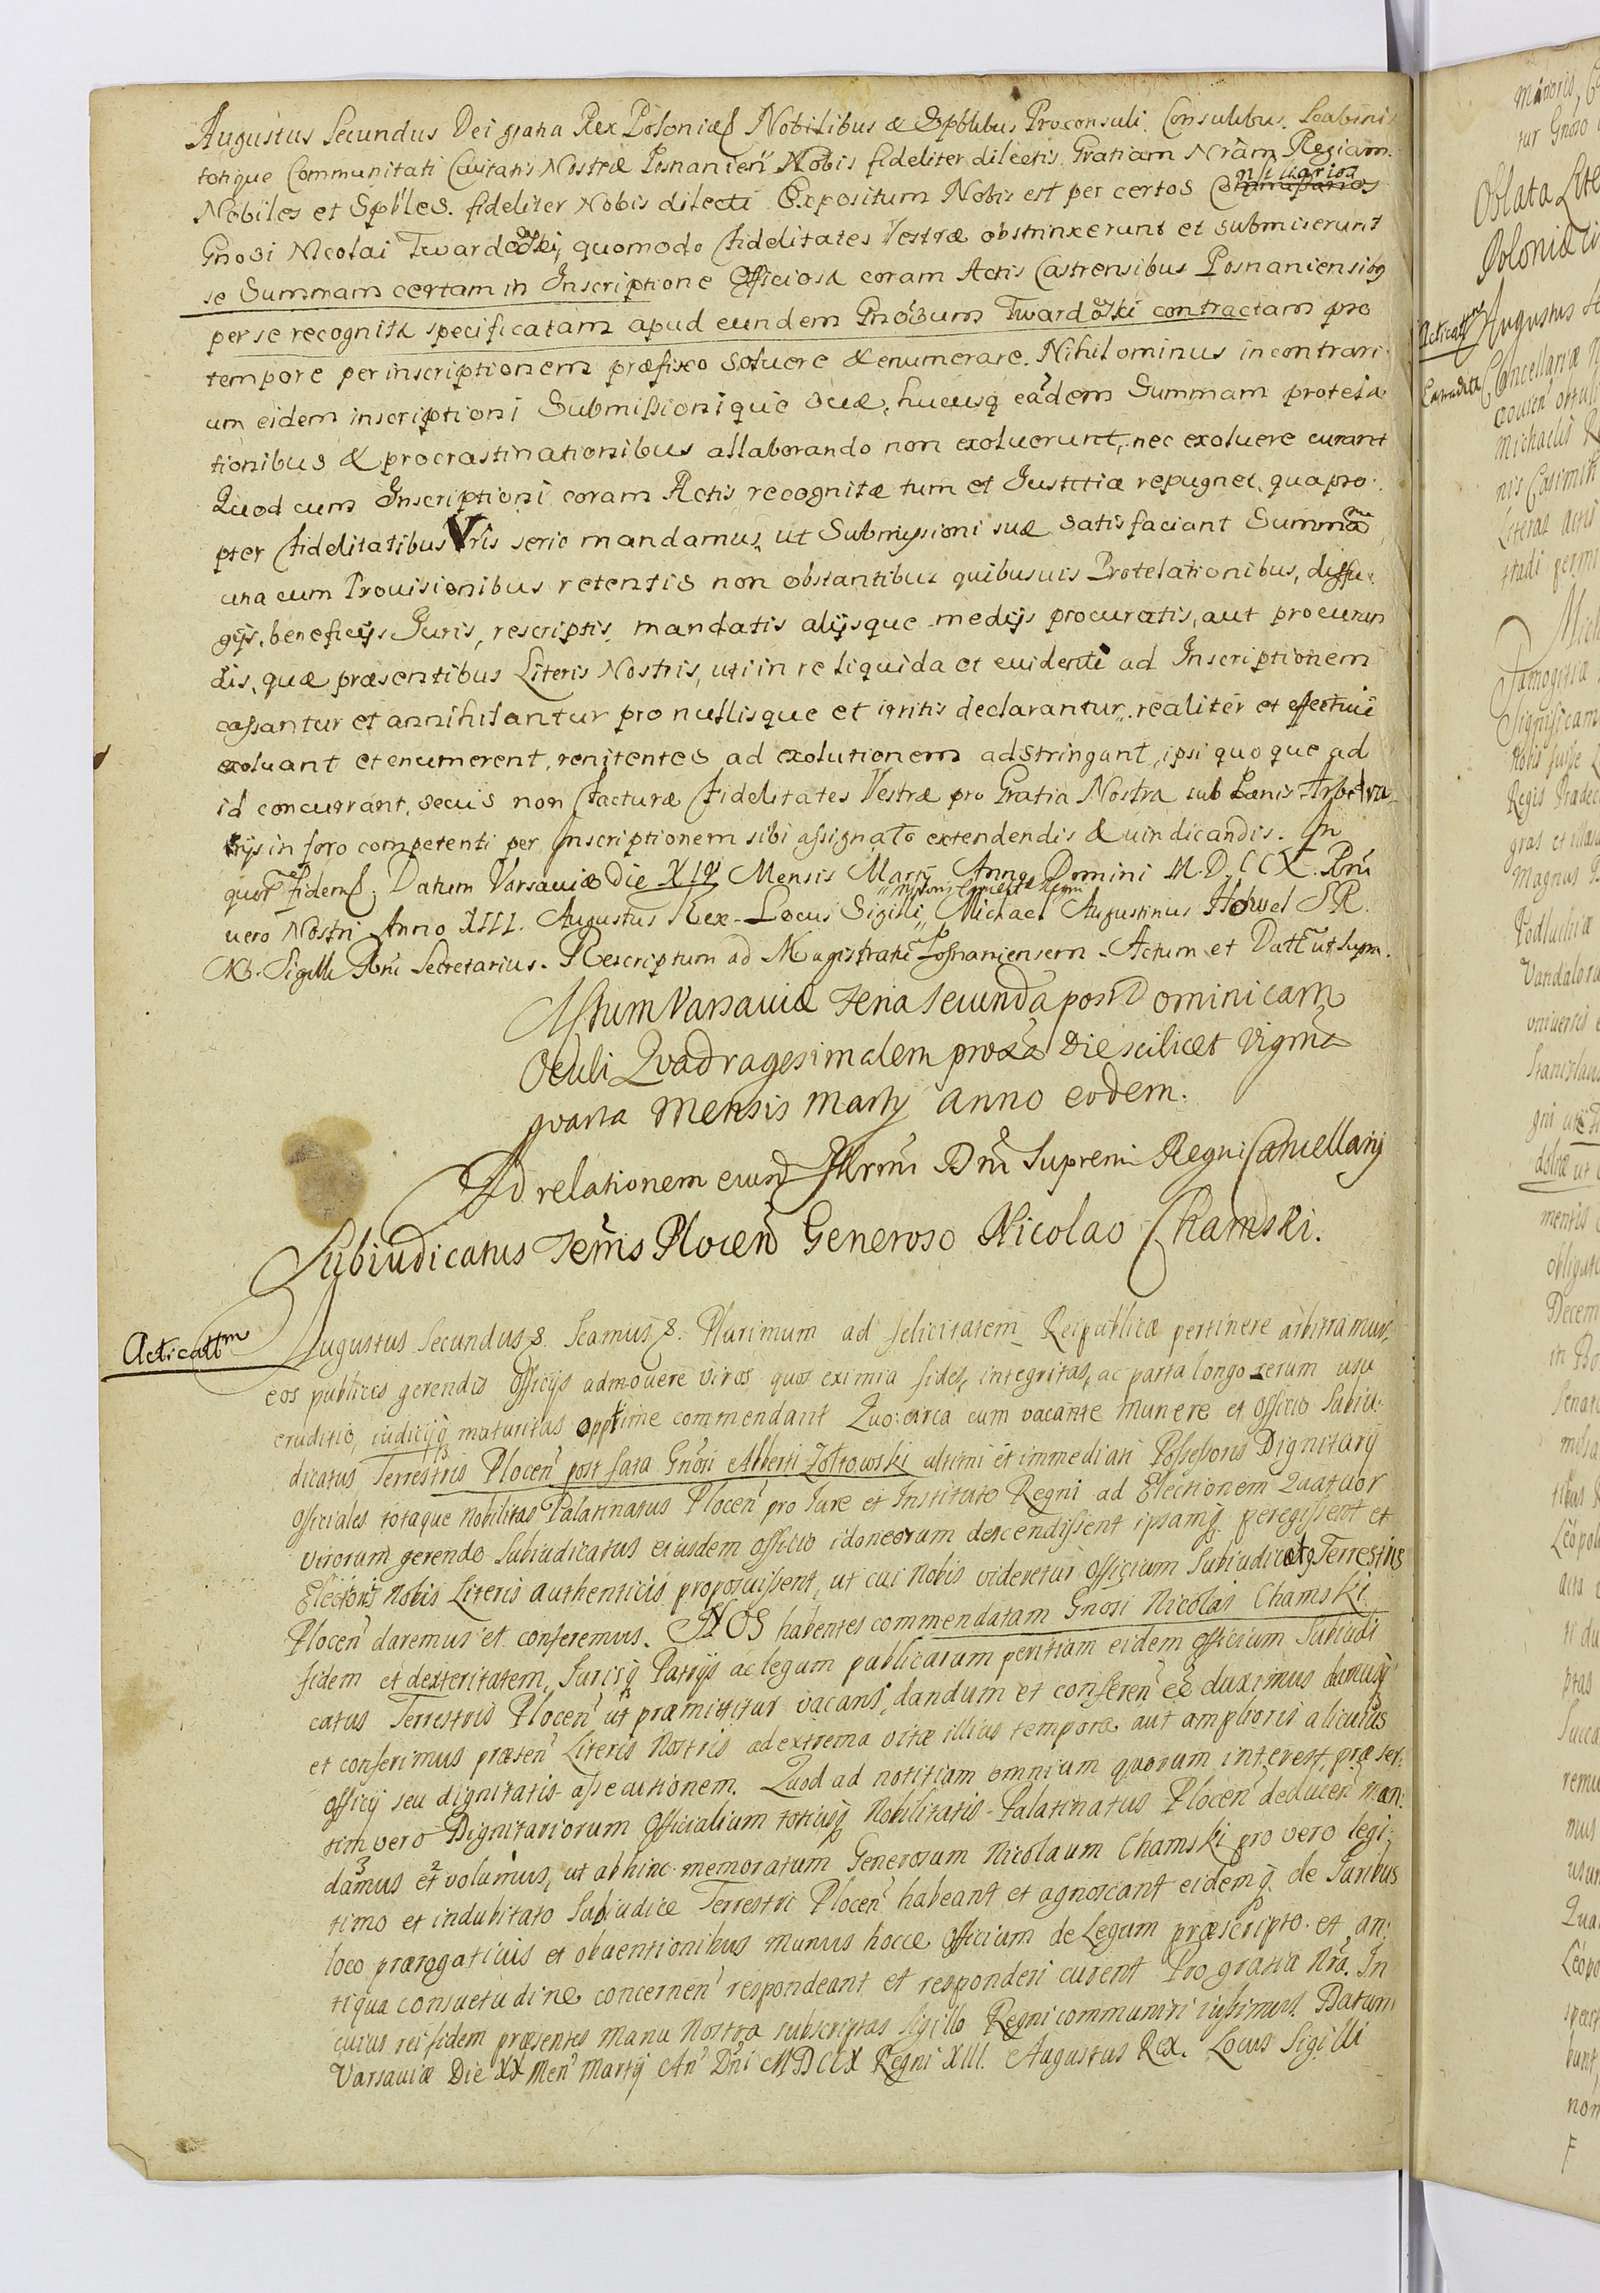 Augustus Secundus Dei gratia Rex Poloniæ Nobilibus & Spblibus Proconsuli. Consulibus. Scabinis
totique Communitati Civitatis Nostræ Posnanien Nobis fideliter dilectis Gratiam Nram Regiam.
Nobiles et Spbles. fideliter Nobis dilecti Expositum Nobis est per certos Consiliarios
Gnosi Nicolai Twardowski, quomodo Fidelitates Vestræ obstrinxerunt et submiserunt
se Summam certam in Inscriptione Officiosa coram Actis Castrensibus Posnaniensibq
per se recognita specificatam apud eundem Gnosum Twardowski contractam pro
tempore per inscriptionem præfixo soluere & enumerare. Nihilominus in contrari
um eidem inscriptioni Submissionique suæ, hucusq eadem Summam protela
tionibus & procrastinationibus allaborando non exoluerunt, nec exoluere curant
Quod cum Inscriptioni coram Actis recognitæ tum et Justitiæ repugnet, quapro
pter Fidelitatibus Vris serio mandamus, ut Submissioni suæ satisfaciant Summa
una cum Provisionibus retentis non obstantibus quibusuis Protelationibus, diffu
gijs, beneficijs Juris, rescriptis, mandatis alijsque medijs procuratis, aut procuran
dis, quæ præsentibus Literis Nostris, uti in re liquida et euidenti ad Inscriptionem
cassantur et annihilantur pro nullisque et irritis declarantur, realiter et effectiue
exoluant et enumerent, renitentes ad exolutionem adstringant, ipsi quoque ad
id concurrant, secus non facturæ Fidelitates Vestræ pro Gratia Nostra sub Pænis Arbitra
rijs in foro competenti per Inscriptionem sibi assignato extendendis & uindicandis. In
quor Fidem. Datum Varsaviæ Die XIV Mensis Martij Anno Domini M.D.CCX. Rni
vero Nostri Anno XIII. Augustus Rex. Locus Sigilli Michael Augustinus Howel S.R.
Mtis. Sigilli Rni Secretarius. Rescriptum ad Magistratu Posnaniensem. Actum et Datt ut supra.
Actum Varsaviæ Feria secunda post Dominicam
Oculi Quadragesimalem proxa Die scilicet vigma
quarta Mensis Martij anno eodem.
Ad relationem eiusd Illrmi Dni Supremi Regni Cancellarij
Subiudicatus Terris Plocen Generoso Nicolao Chamski.
Acticattm
Augustus Secundus &. Scamus &. Plurimum ad felicitatem Reipublicæ pertinere arbitramur,
eos publicis gerendis Officijs admovere viros quos eximia fides, integritas, ac parta longo rerum usu
eruditio, iudicijq maturitas opptime commendant Quocirca cum vacante Munere et Officio Subiu
dicatus Terrestris Plocen post fata Gnosi Alberti Zołtowski ultimi et immediati Possessoris Dignitarij
Officiales totaque Nobilitas Palatinatus Plocen pro Jure et Instituto Regni ad Electionem Quatuor
Virorum gerendo Subiudicatus eiusdem officio idoneorum descendissent ipsamq peregissent et
Electoris Nobis Literis authenticis proposuissent, ut cui Nobis videretur officium Subiudicatq Terrestris
Plocen daremus et conferemus. NOS habentes commendatam Gnosi Nicolai Chamski
fidem et dexteritatem, Jurisq Patrijs ac legum publicarum peritiam eidem officium Subiudi
catus Terrestris Plocen ut præmittitur vacans, dandum et conferen ee duximus damusq
et conferimus præsen Literis Nostris ad extrema vitæ illius tempora aut amplioris alicuius
officij seu dignitatis assecutionem. Quod ad notitiam omnium quorum interest, præser
tim vero Dignitariorum Officialium totiusq Nobilitatis Palatinatus Plocen deducen man
damus et volumus, ut abhinc memoratum Generosum Nicolaum Chamski pro vero legi
timo et indubitato Subiudice Terrestri Plocen habeant et agnoscant eidemq de Juribus
loco prærogativis et obventionibus Munus hocce officium de Legum præscripto et an
tiqua consuetudine concernen respondeant et responderi curent Pro gratia Nra. In
cuius rei fidem præsentes Manu Nostra subscriptas Sigillo Regni communiri iussimus. Datum
Varsaviæ Die XX Men Martij An Dni MDCCX Regni XIII. Augustus Rex. Locus Sigilli
Oblata Lite
Acticattm
Augustus
Extradita
Cancellariæ
Michaelis
nis Casimiri
Magnus
Podlachiæ
universis
Decem
in